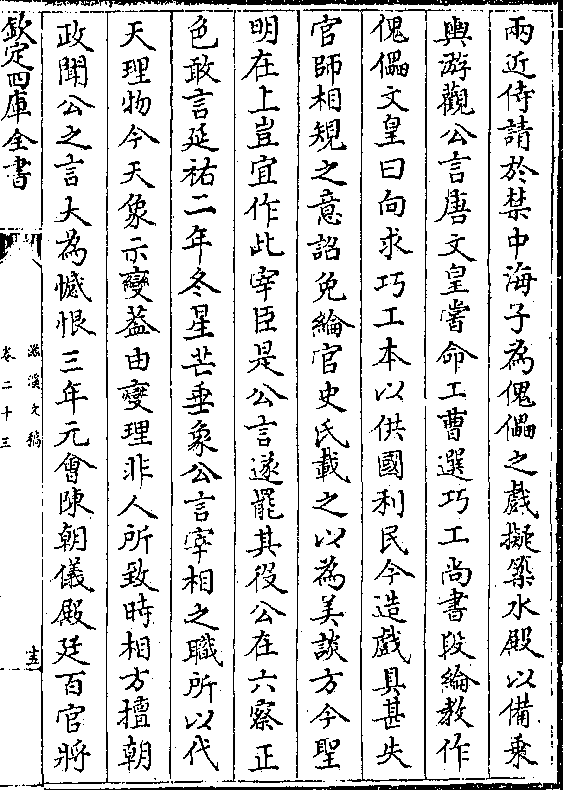 兩近侍請於禁中海子為傀儡之戲擬築水殿以備乗
輿游觀公言唐文皇嘗命工曹選巧工尚書段綸教作
傀儡文皇曰向求巧工本以供國利民今造戲具甚失
官師相規之意詔免綸官史氏載之以為美談方今聖
明在上豈宜作此宰臣是公言遂罷其役公在六察正
色敢言延祐二年冬星芒垂象公言宰相之職所以代
天理物今天象示變葢由變理非人所致時相方擅朝
政聞公之言大為憾恨三年元會陳朝儀殿廷百官將
欽定四庫全書
滋溪文稿
卷二十三